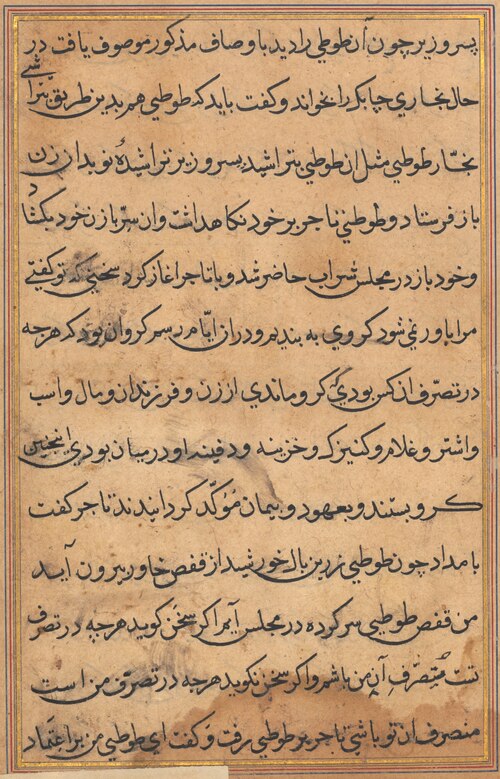 پسر وزیر چون آن طوطی را دید باوصاف مذکور موصوف یافت در
حال نجاری چابک را بخواند و گفت باید که طوطی هم بدین طریق بتراشی
نجّار طوطی مثل ان طوطی بتراشید پسر وزیر تراشیدهٔ نو بدان زن
باز فرستاد و طوطی تاجر بر خود نکاه داشت وان سرّ با زن خود بکشاد
و خود باز در مجلس شراب حاضر شد و با تاجر اغاز کرد سخنی که تو کفتی
مرا باور نمی شود کروی به بندیم و دران ایّام رسم کرو ان بود که هرچه
در تصرّف ان کس بودی کرو ماندی از زن و فرزندان و مال و اسب
و اشتر و غلام و کنیزک و خزینه و دفینه او در میان بودی انجنین
کرو بستند و بعهود و پیمان مُؤکّد کردانیدند تاجر کفت
بامداد چون طوطی زرین بال خورشید از قفص خاور بیرون آید
من قفص طوطی سر کرده در مجلس آیم اکر سخن کوید هرچه در تصرف
تست مُتصرّف آن من باشم و اکر سخن نکوید هرچه در تصرف من است
متصرف ان تو باشی تاجر بر طوطی رفت و کفت ای طوطی من بر اعتماد